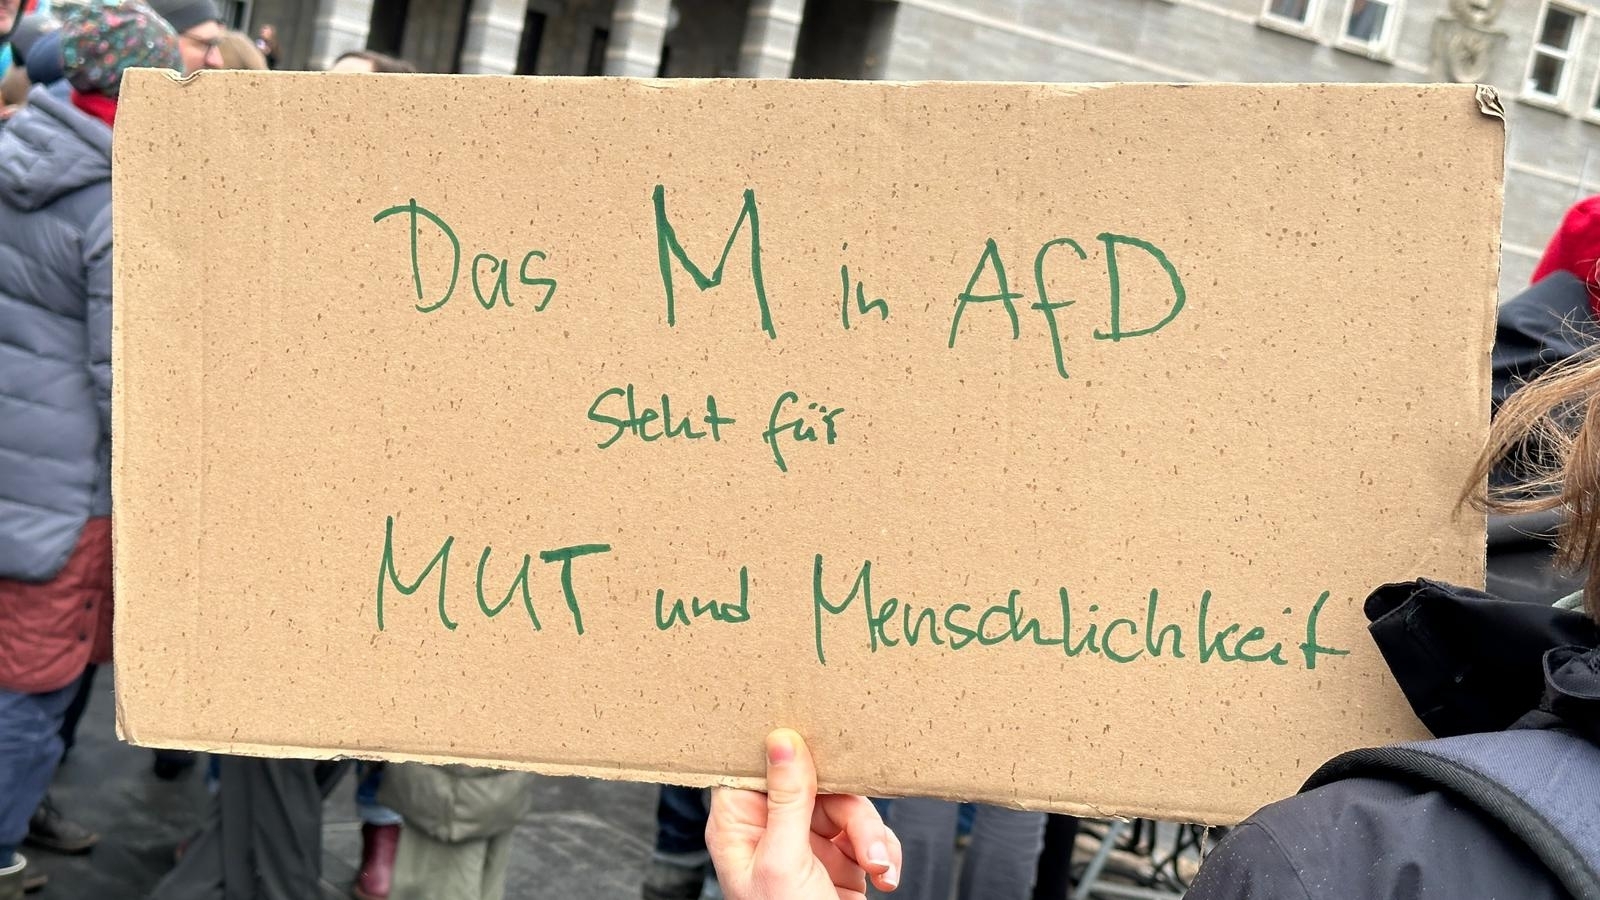 Das M in AfD
steht für
MUT und Menschlichkeit